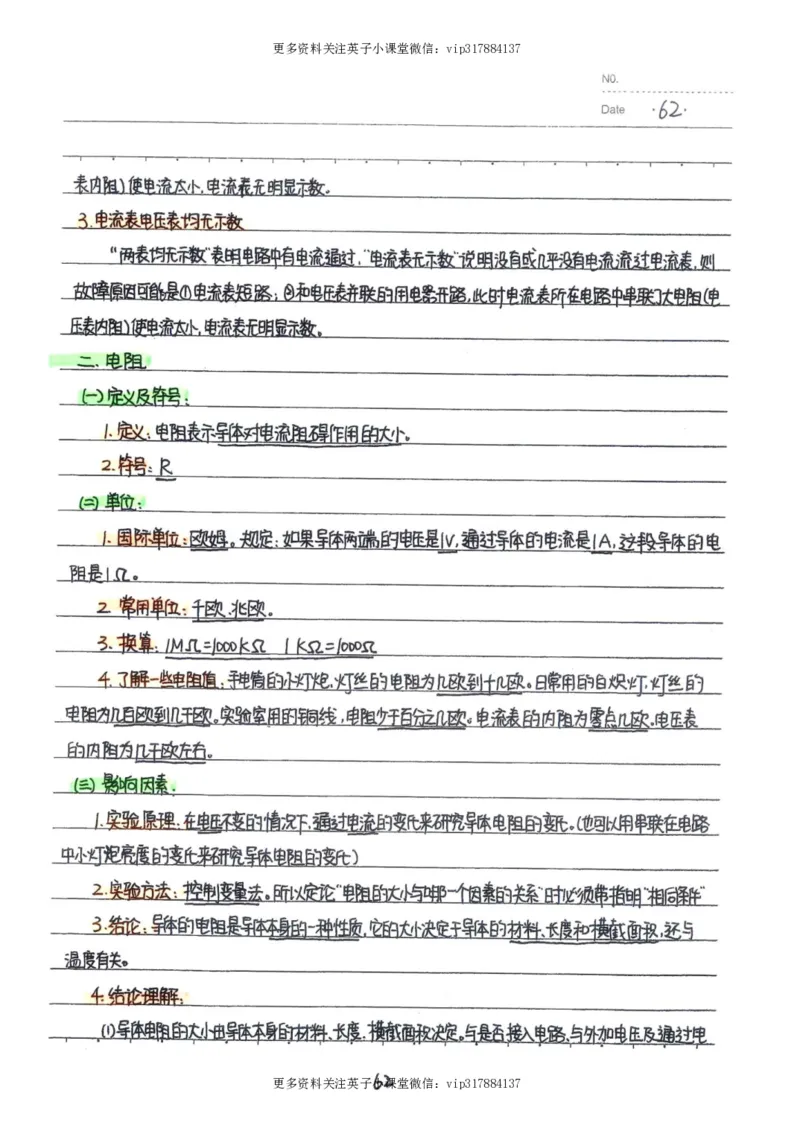 更多资料关注英子小课堂微信：vip317884137
No.
Date ·62·
表内阻)使电流太小,电流表无明显示数。
3.电流表电压表均无示数
“两表均无示数”表明电路中有电流通过,“电流表无示数”说明没有或几乎没有电流流过电流表,则
故障原因可能是①电流表短路;②和电压表并联的用电器开路,此时电流表所在电路中串联了大电阻(电
压表内阻)使电流太小,电流表无明显示数。
二.电阻
(一)定义及符号:
1.定义:电阻表示导体对电流阻碍作用的大小。
2.符号:R
(二)单位:
1.国际单位:欧姆。规定:如果导体两端的电压是1V,通过导体的电流是1A,这段导体的电
阻是1Ω。
2.常用单位:千欧、兆欧。
3.换算:1MΩ=1000KΩ 1KΩ=1000Ω
4.了解一些电阻值:手电筒的小灯泡,灯丝的电阻为几欧到十几欧。日常用的白炽灯,灯丝的
电阻为几百欧到几千欧。实验室用的铜线,电阻少于百分之几欧。电流表的内阻为零点几欧,电压表
的内阻为几千欧左右。
(三)影响因素.
1.实验原理:在电压不变的情况下,通过电流的变化来研究导体电阻的变化。(也可以用串联在电路
中小灯泡亮度的变化来研究导体电阻的变化)
2.实验方法:控制变量法。所以定论“电阻的大小与哪一个因素的关系”时必须带指明“相同条件”
3.结论:导体的电阻是导体本身的一种性质,它的大小决定于导体的材料、长度和横截面积,还与
温度有关。
4.结论理解:
(1)导体电阻的大小由导体本身的材料、长度、横截面积决定。与是否接入电路、与外加电压及通过电
更多资料关注英子小课堂微信：vip317884137
62